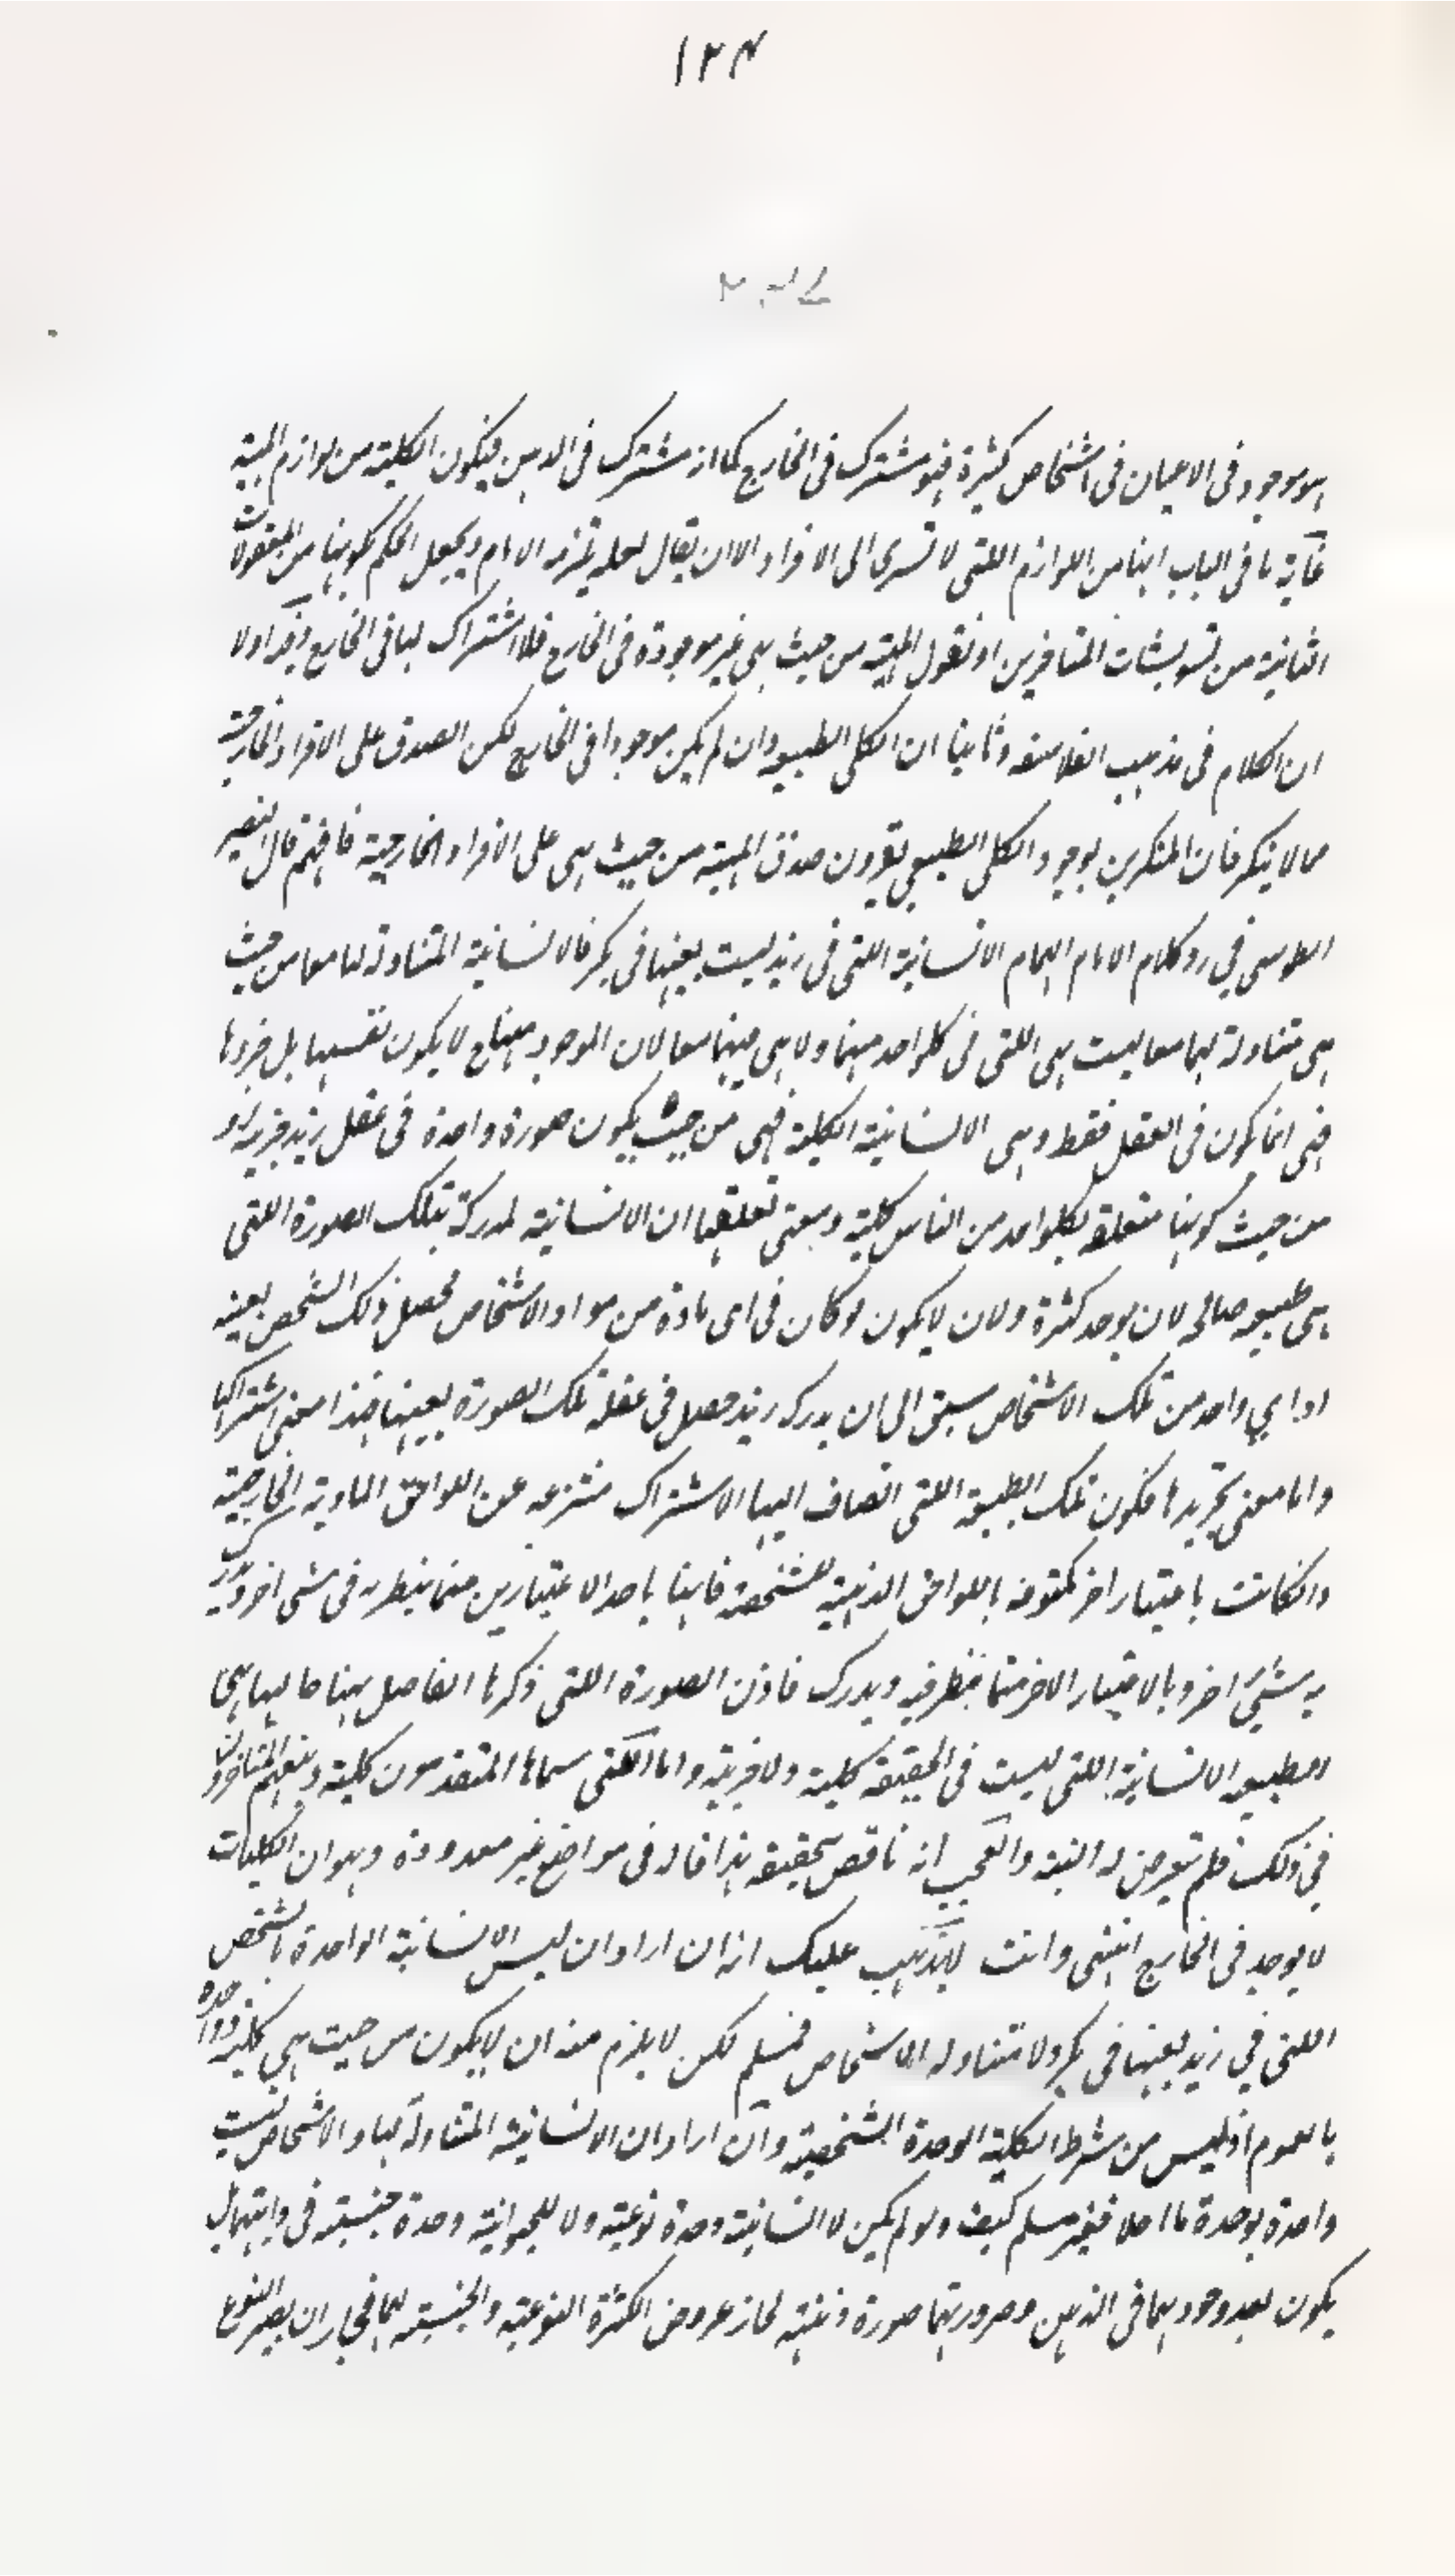 ١٢٤
هو موجود فى الاعيان فى اشخاص كثيرة فهو مشترك فى الخارج كما انه مشترك فى الذهن فيكون الكلية من لوازم المهية
غاية ما فى الباب انها من اللوازم اللتى لا تسرى الى الافراد الا ان يقال لعله يلتزمه الامام ويجعل الحكم بكونها من المعقولات
الثانية من تشويشات المتاخرين او نقول المهية من حيث هى غير موجودة فى الخارج فلا اشتراك لها فى الخارج وفيه اولا
ان الكلام فى مذهب الفلاسفة وثانيا ان الكلى الطبيعى وان لم يكن موجودا فى الخارج لكن الصدق على الافراد الخارجية
مما لا ينكر فان المنكرين لوجود الكلى الطبيعى يقرون صدق المهية من حيث هى على الافراد الخارجية فافهم قال النصير
الطوسى فى رد كلام الامام الهمام الانسانية اللتى فى زيد ليست بعينها فى بكر فالانسانية المتناولة لهما معا من حيث
هى متناولة لهما معا ليست هى اللتى فى كلواحد منهما ولا هى فيهما معا لان الموجود منها ح لا يكون نفسها بل جزءها
فهى انما تكون فى العقل فقط وهى الانسانية الكلية فهى من حيث يكون صورة واحدة فى عقل زيد جزئية و
من حيث كونها متعلقة بكلواحد من الناس كلية ومعنى تعلقها ان الانسانية المدركة بتلك الصورة اللتى
هى طبيعة صالحة لان يوجد كثرة ولان لا يكون لو كان فى اى مادة من مواد الاشخاص لحصل ذلك الشخص بعينه
او اي واحد من تلك الاشخاص سبق الى ان يدركه زيد حصل فى عقله تلك الصورة بعينها فهذا معنى اشتراكها
واما معنى تجريدها فكون تلك الطبيعة اللتى انضاف اليها الاشتراك منتزعة عن اللواحق المادية الخارجية
وانكانت باعتبار اخر مكفوفة باللواحق الذهنية المشخصة فانها باحد الاعتبارين مما ينظر به فى شى اخر ويدرك
به شيئ اخر وبالاعتبار الاخر مما ينظر فيه ويدرك فاذن الصورة اللتى ذكرها الفاضل ههنا حالها هى
الطبيعة الانسانية اللتى ليست فى الحقيقة كلية ولا جزئية واما اللتى سماها المتقدمون كلية وتبعهم المتاخرون
فى ذلك فلم يتعرض له البتة والعجب انه ناقص بتحقيقه هذا ما قاله فى مواضع غير معدودة وهو ان الكليات
لا يوجد فى الخارج انتهى وانت لا يذهب عليك انه ان اراد ان ليس الانسانية الواحدة بالشخص
اللتى فى زيد بعينها فى بكر ولا متناولة الاشخاص فمسلم لكن لا يلزم منه ان لا يكون من حيث هى كلية وواحدة
بالعموم اذ ليس من شرط الكلية الوحدة الشخصية وان اراد ان الانسانية المتناولة لها والاشخاص ليست
واحدة بوحدة ما اصلا فغير مسلم كيف ولو لم يكن لانسانية وحدة نوعية ولا للحيوانية وحدة جنسية فى
يكون بعد وجودهما فى الذهن وصرورتهما صورة ذهنية لجاز عروض الكثرة النوعية والجنسية لهما فجاز ان يصير النوع